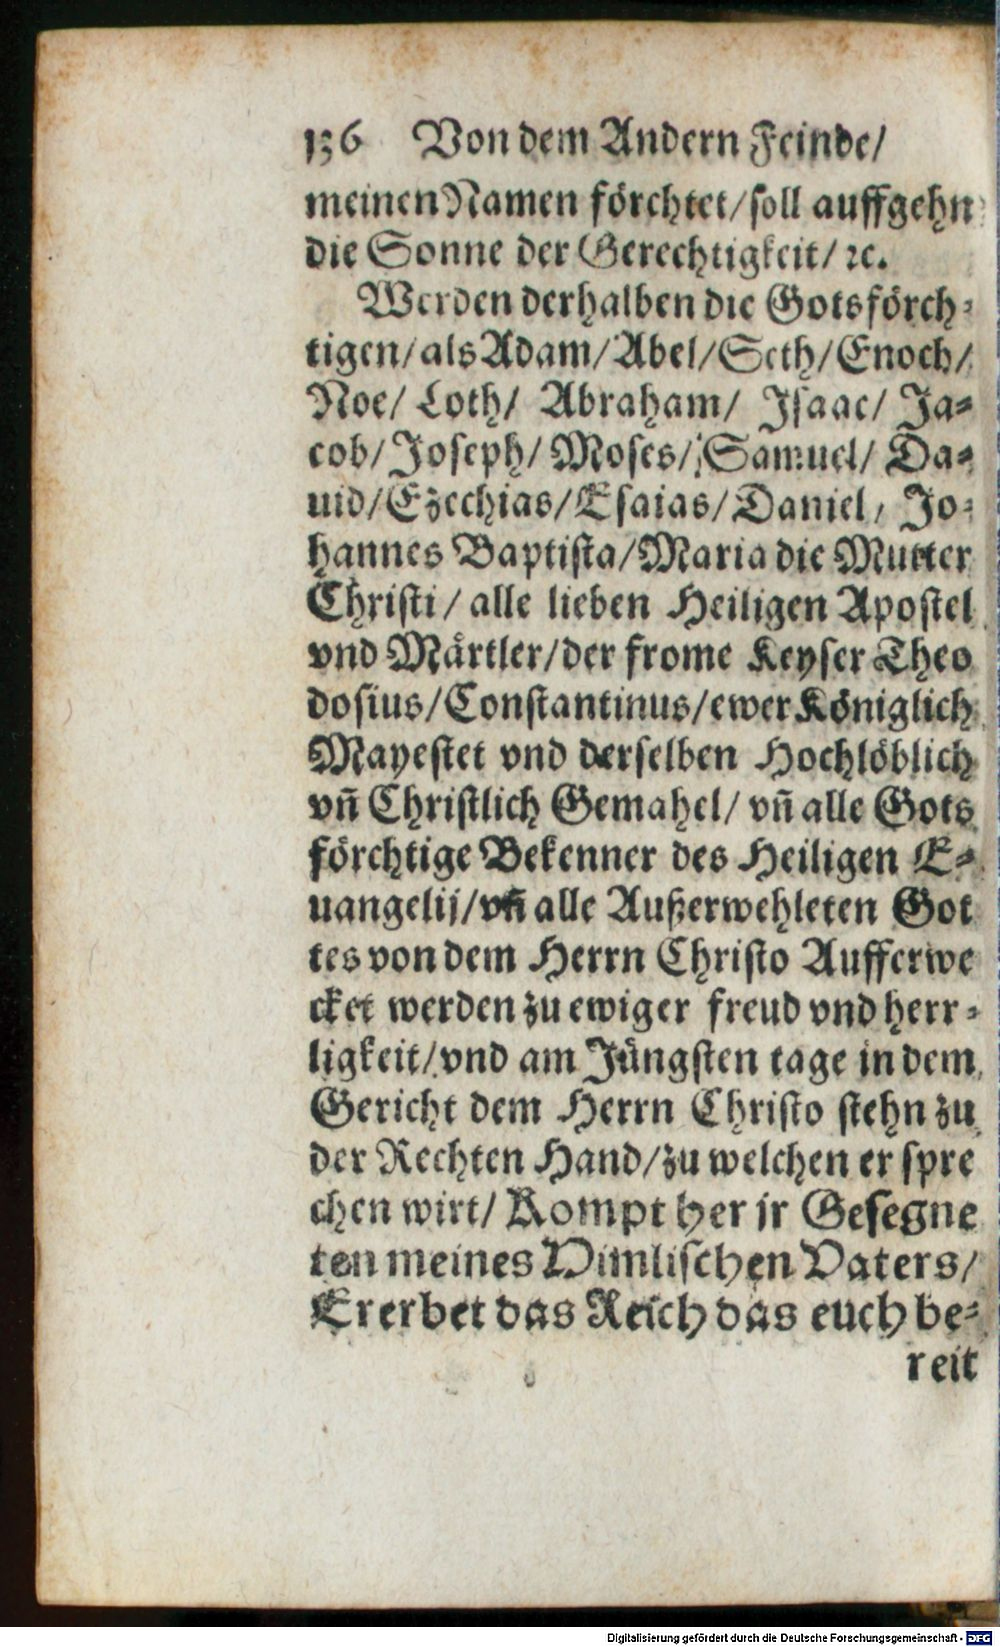 136 Von dem Andern Feinde/
meinen Namen förchtet/soll auffgehn
die Sonne der Gerechtigkeit/ ꝛc.
Werden derhalben die Gotsförch⸗
tigen/als Adam/Abel/Seth/Enoch/
Noe/ Loth/ Abraham/ Isaac/ Ja⸗
cob/Joseph/ Moses/ Samuel/ Da⸗
uid/Ezechias/Esaias/Daniel, Jo⸗
hannes Baptista/Maria die Mutter
Christi/ alle lieben Heiligen Apostel
vnd Mårtler/der frome Keyser Theo
dosius/Constantinus/ewer Königlich
Mayestet vnd derselben Hochlöblich
vn̄ Christlich Gemahel/ vn̄ alle Gots
förchtige Bekenner des Heiligen E⸗
uangelij/vn̄ alle Außerwehleten Got
tes von dem Herrn Christo Aufferwe
cket werden zu ewiger freud vnd herr⸗
ligkeit/vnd am Jüngsten tage in dem
Gericht dem Herrn Christo stehn zu
der Rechten Hand/zu welchen er spre
chen wirt/ Kompt her jr Gesegne
ten meines Himlischen Vaters/
Ererbet das Reich das euch be⸗
reit
Digitalisierung gefördert durch die Deutsche Forschungsgemeinschaft - DFG